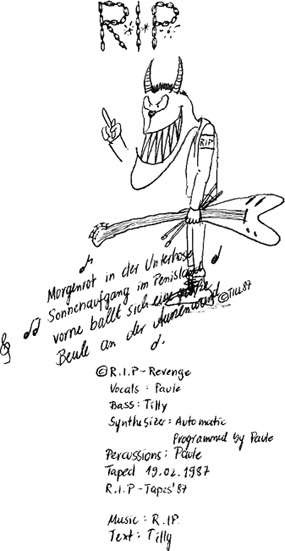 R.I.P
R.I.P
Morgenrot in der Unterhose
Sonnenaufgang im Penisland
vorne ballt sich eine
Beule an der
©TILL87
© R.I.P-Revenge
Vocals: Paule
Bass: Tilly
Synthusizer: Automatic
Programmed by Paule
Percussions: Paule
Taped 19.02.1987
R.I.P-Tapes'87
Music: R.I.P.
Text: Tilly